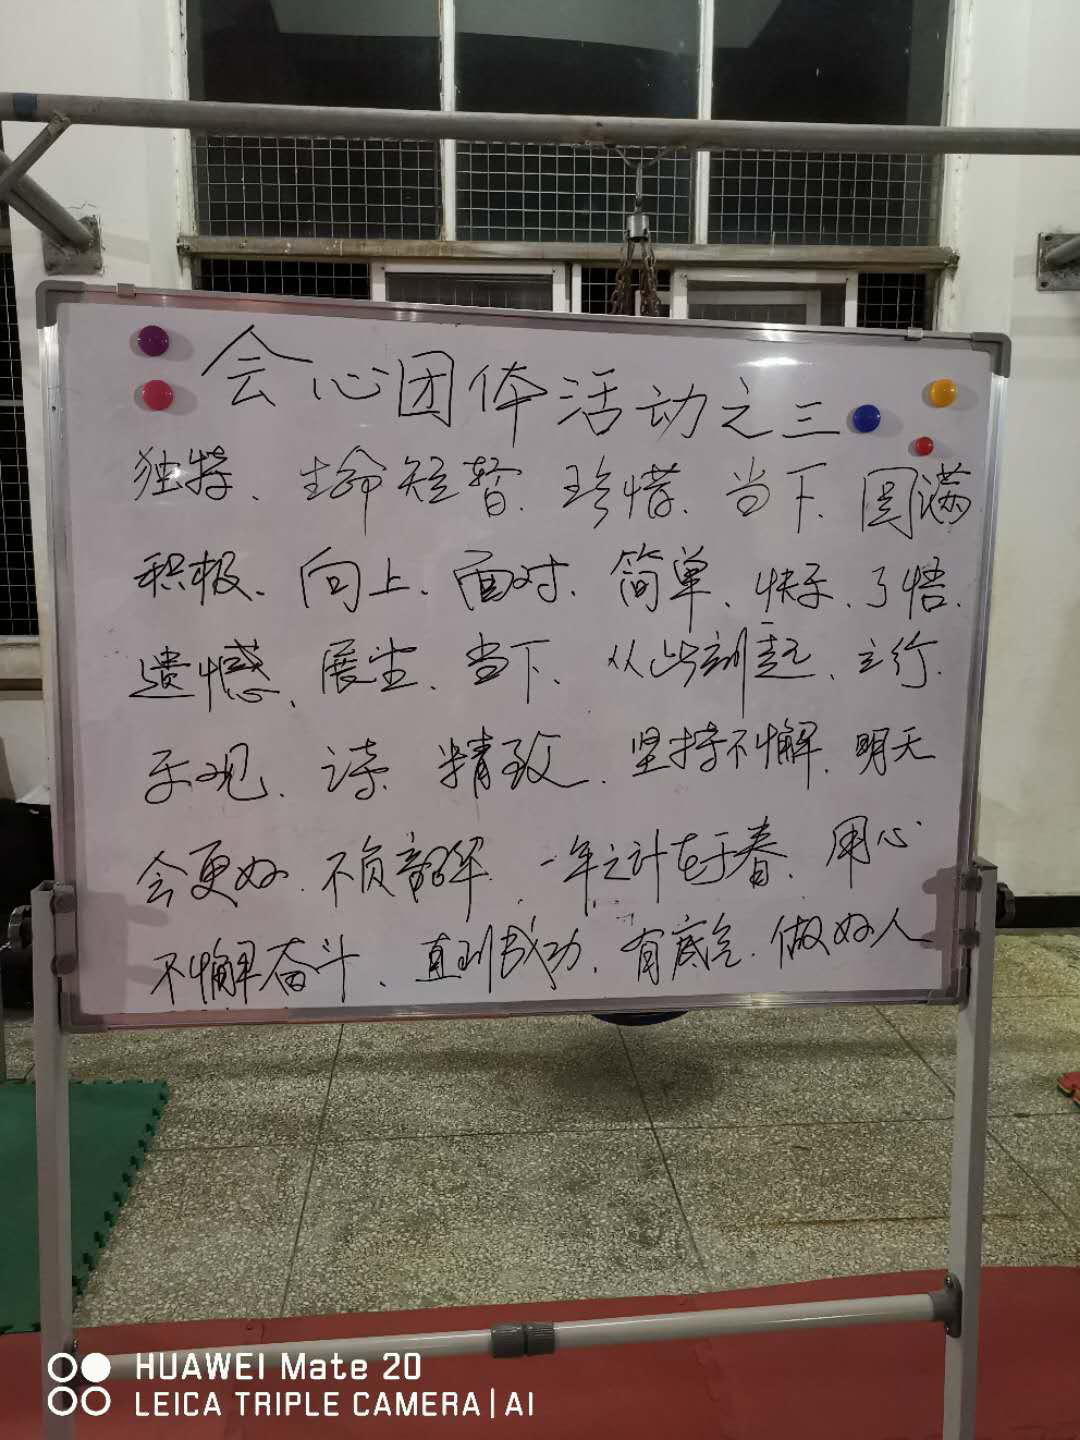 会心团体活动之三
独特、生命短暂、珍惜、当下、圆满
积极、向上、面对、简单、快乐、了悟、
遗憾、展望、当下、从此刻起、立行、
乐观、读、精致、坚持不懈、明天
会更好、不负韶华、一年之计在于春、用心
不懈奋斗、直到成功、有底气、做好人
HUAWEI Mate 20
LEICA TRIPLE CAMERA | AI